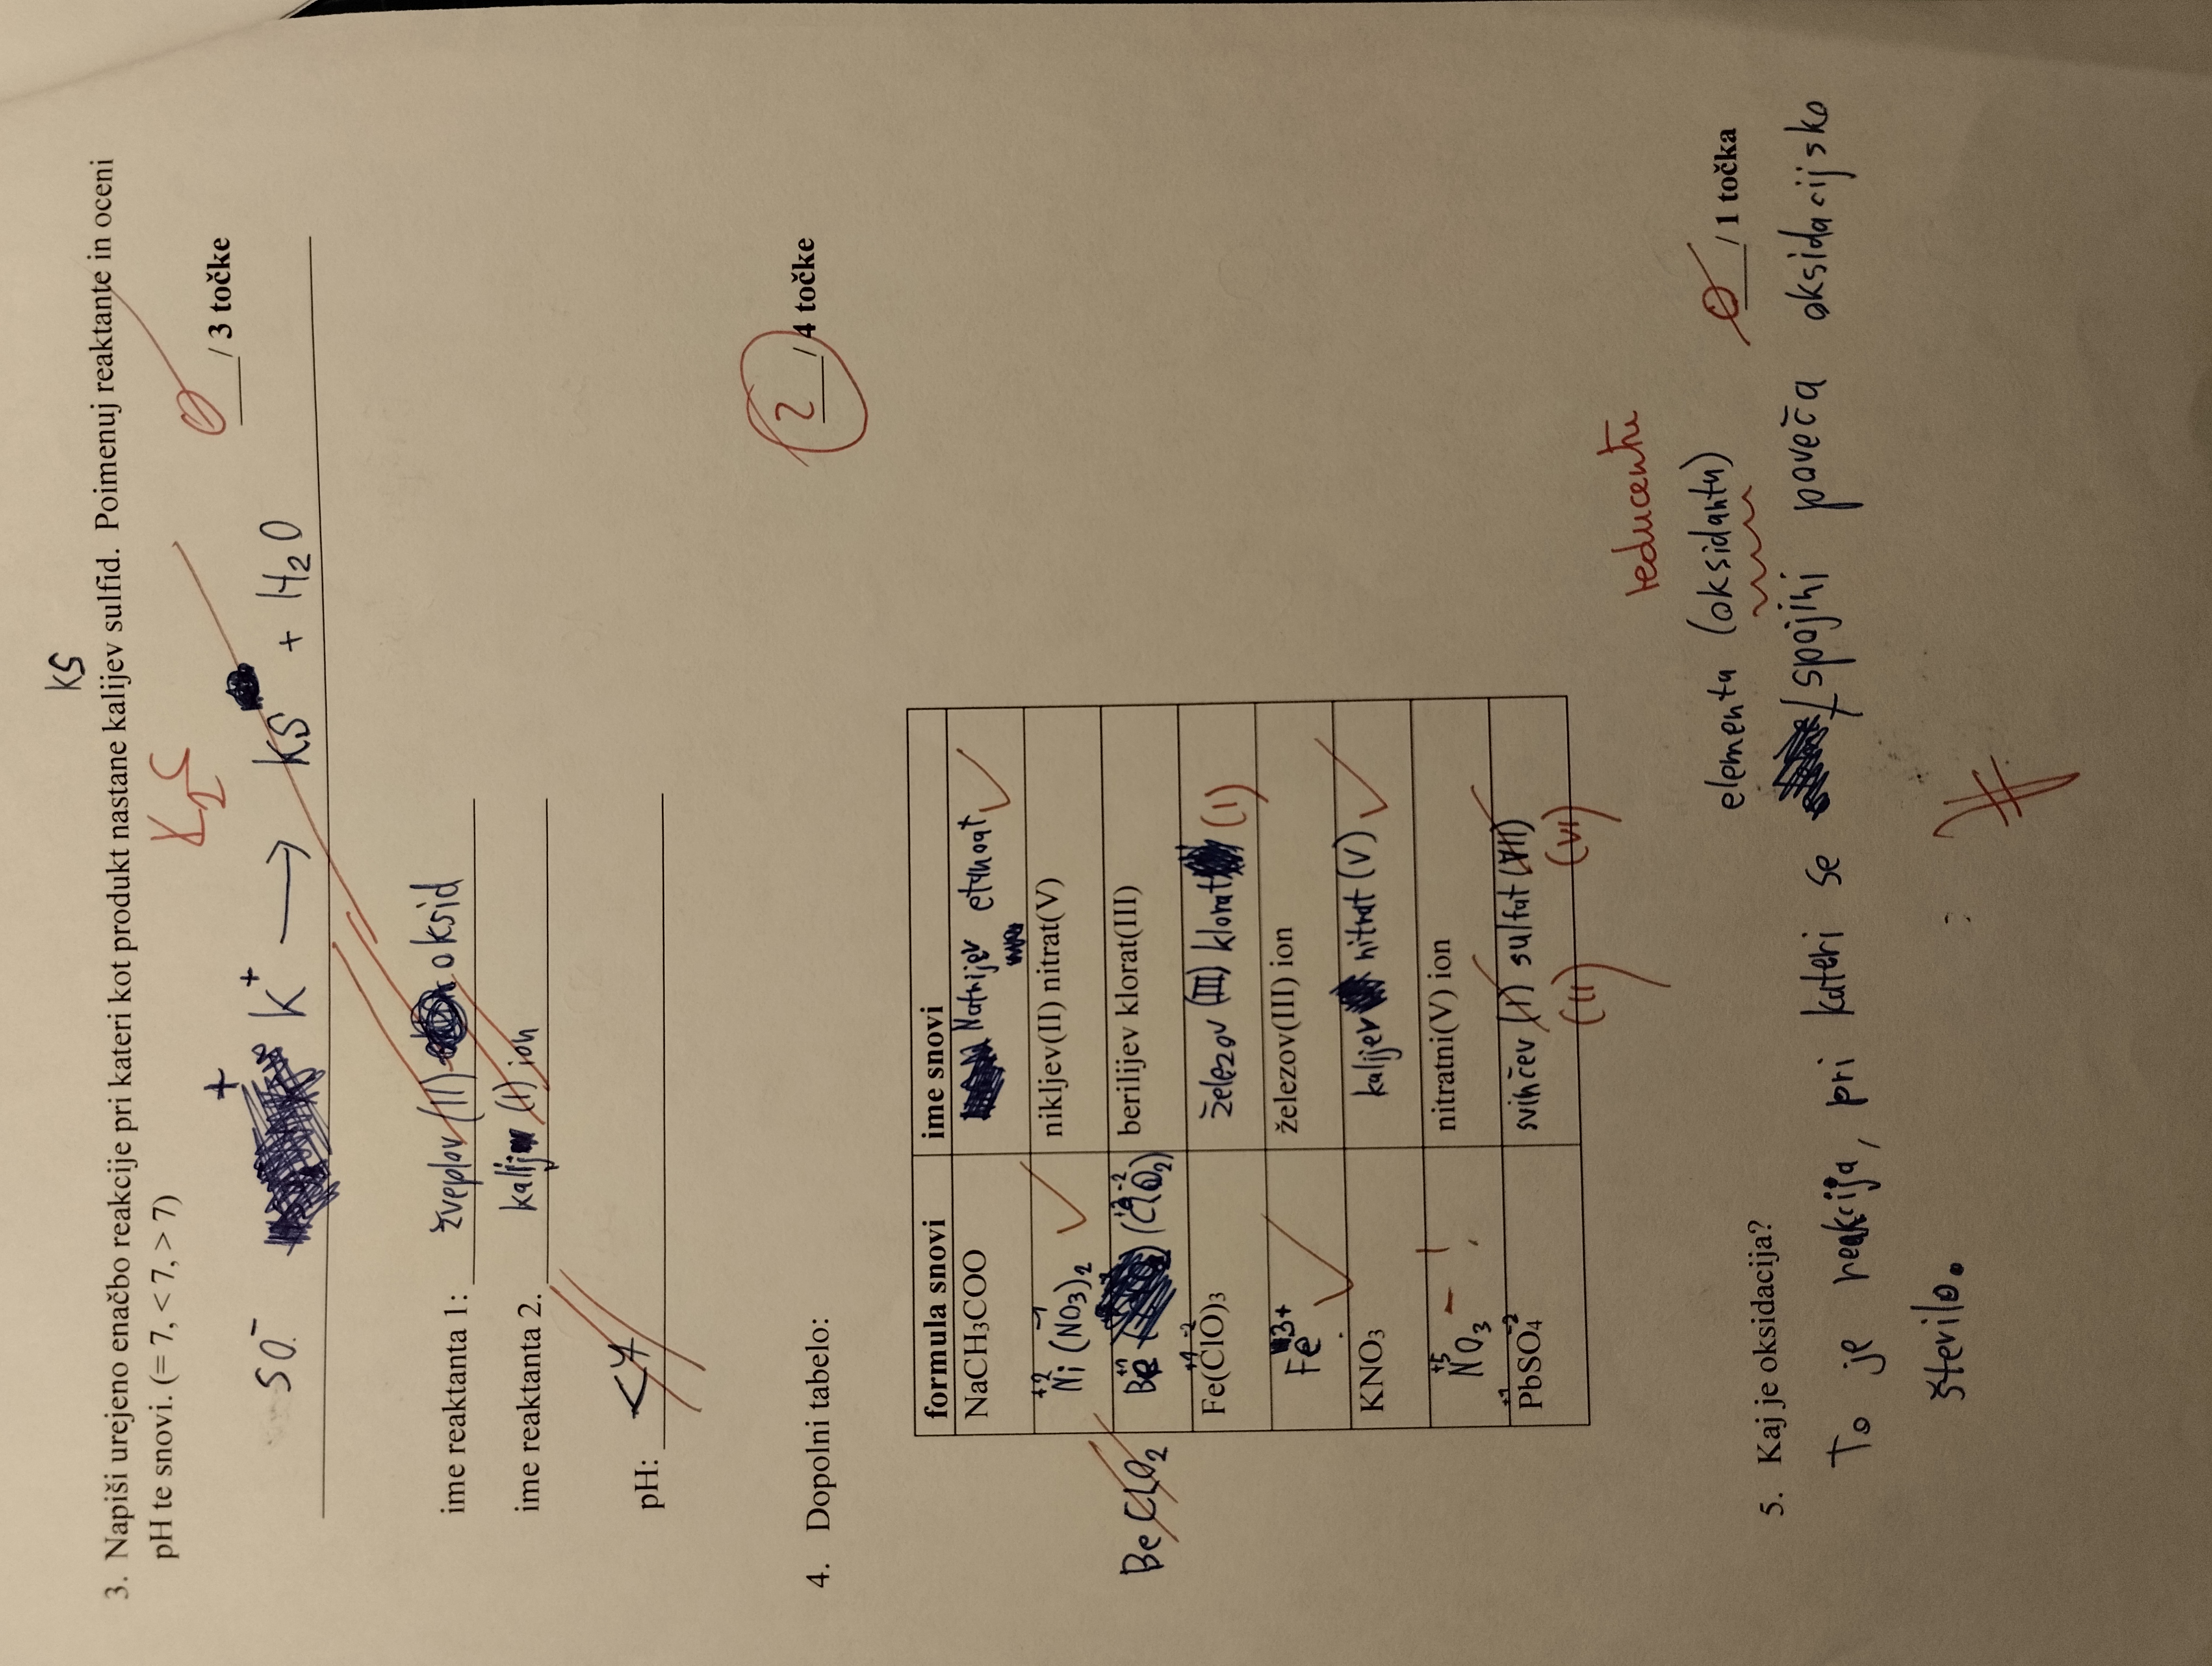 KS
3. Napiši urejeno enačbo reakcije pri kateri kot produkt nastane kalijev sulfid. Poimenuj reaktante in oceni
pH te snovi. (= 7, < 7, > 7)
K₂S
0 / 3 točke
SO⁻ + K⁺ → KS + H₂O
ime reaktanta 1: žveplov (II) oksid
ime reaktanta 2. kalijev (I) ion
pH: <7
4. Dopolni tabelo:
2 / 4 točke
formula snovi ime snovi
NaCH₃COO Natrijev etanoat ✓
+2 -1
Ni(NO₃)₂ ✓ nikljev(II) nitrat(V)
BeClO₂ Be (ClO₂) berilijev klorat(III)
+1 -2
Fe(ClO)₃ železov (III) klorat (I)
Fe³⁺ ✓ železov(III) ion
KNO₃ kalijev nitrat (V) ✓
+5
NO₃⁻ ! nitratni(V) ion
+1 -2
PbSO₄ svinčev (I) sulfat (VII)
(II) (VI)
reducentu
elementu (oksidantu)
0 / 1 točka
5. Kaj je oksidacija?
To je reakcija, pri kateri se / spojini poveča oksidacijsko
število.